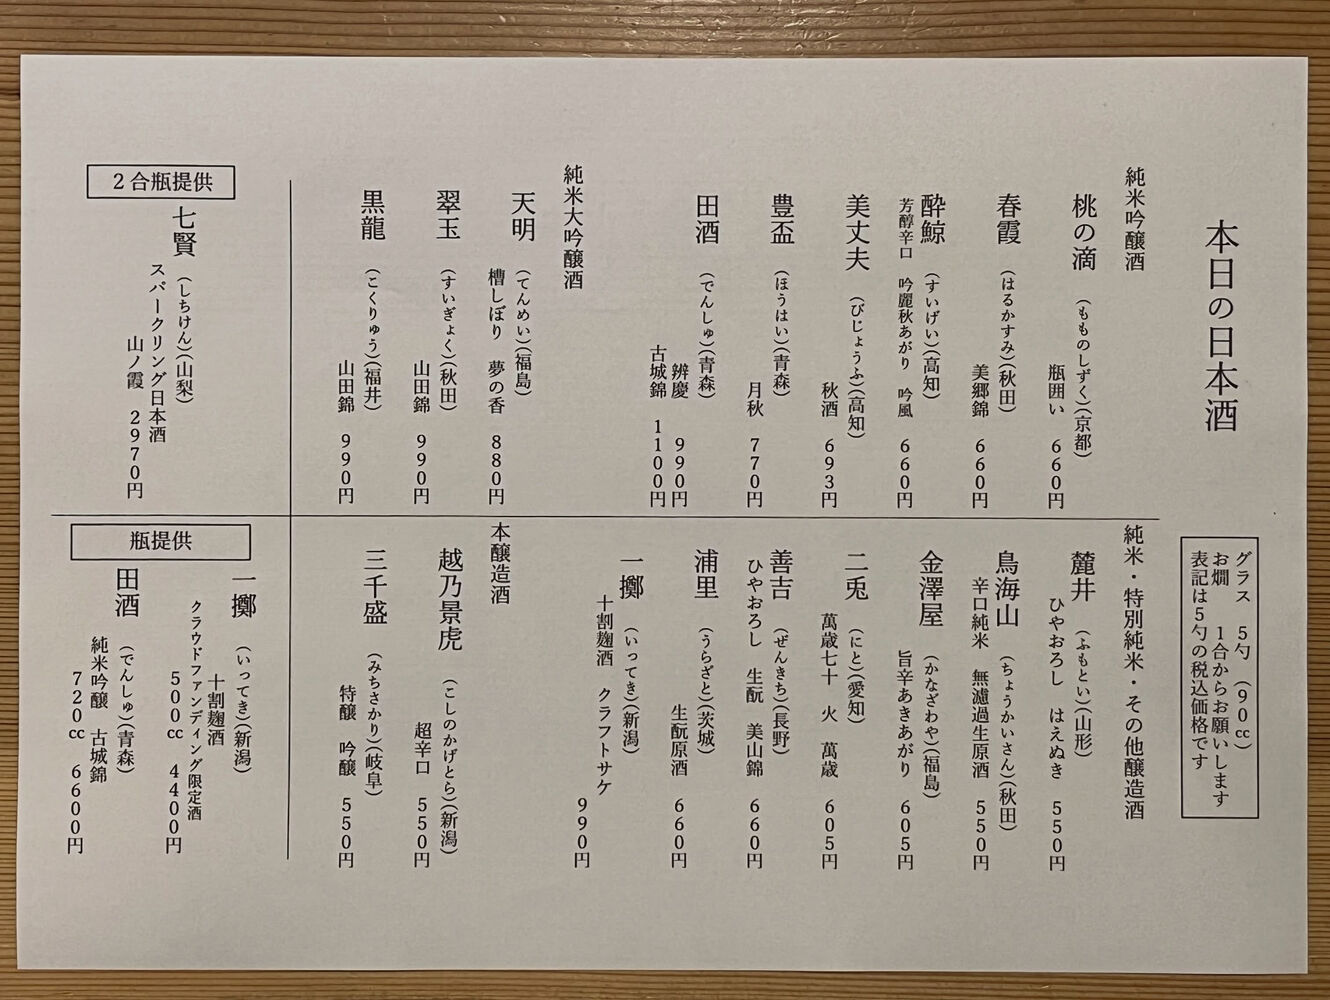 本日の日本酒
グラス　5勺　（90cc）
お燗　1合からお願いします
表記は5勺の税込価格です
純米吟醸酒
桃の滴　（もものしずく）（京都）
瓶囲い　660円
春霞　（はるかすみ）（秋田）
美郷錦　660円
酔鯨　（すいげい）（高知）
芳醇辛口　吟麗秋あがり　吟風　660円
美丈夫　（びじょうふ）（高知）
秋酒　693円
豊盃　（ほうはい）（青森）
月秋　770円
田酒　（でんしゅ）（青森）
辨慶　990円
古城錦　1100円
純米大吟醸酒
天明　（てんめい）（福島）
槽しぼり　夢の香　880円
翠玉　（すいぎょく）（秋田）
山田錦　990円
黒龍　（こくりゅう）（福井）
山田錦　990円
純米・特別純米・その他醸造酒
麓井　（ふもとい）（山形）
ひやおろし　はえぬき　550円
鳥海山　（ちょうかいさん）（秋田）
辛口純米　無濾過生原酒　550円
金澤屋　（かなざわや）（福島）
旨辛あきあがり　605円
二兎　（にと）（愛知）
萬歳七十　火　萬歳　605円
善吉　（ぜんきち）（長野）
ひやおろし　生酛　美山錦　660円
浦里　（うらざと）（茨城）
生酛原酒　660円
一擲　（いってき）（新潟）
十割麹酒　クラフトサケ
990円
本醸造酒
越乃景虎　（こしのかげとら）（新潟）
超辛口　550円
三千盛　（みちさかり）（岐阜）
特醸　吟醸　550円
2合瓶提供
七賢　（しちけん）（山梨）
スパークリング日本酒
山ノ霞　2970円
瓶提供
一擲　（いってき）（新潟）
十割麹酒
クラウドファンディング限定酒
500cc　4400円
田酒　（でんしゅ）（青森）
純米吟醸　古城錦
720cc　6600円